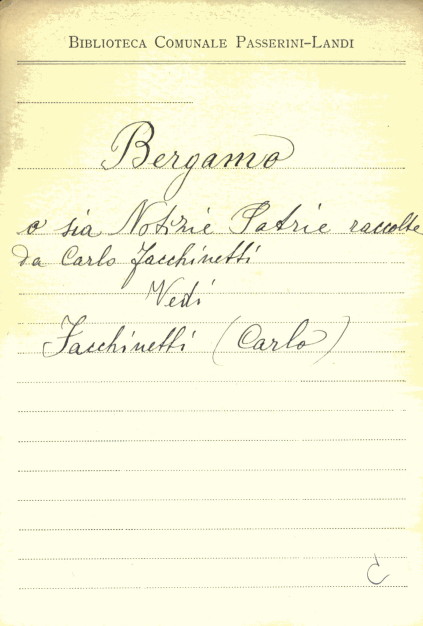 BIBLIOTECA COMUNALE PASSERINI-LANDI
Bergamo
o sia Notizie Patrie raccolte
da Carlo Facchinetti
Vedi
Facchinetti (Carlo)
C